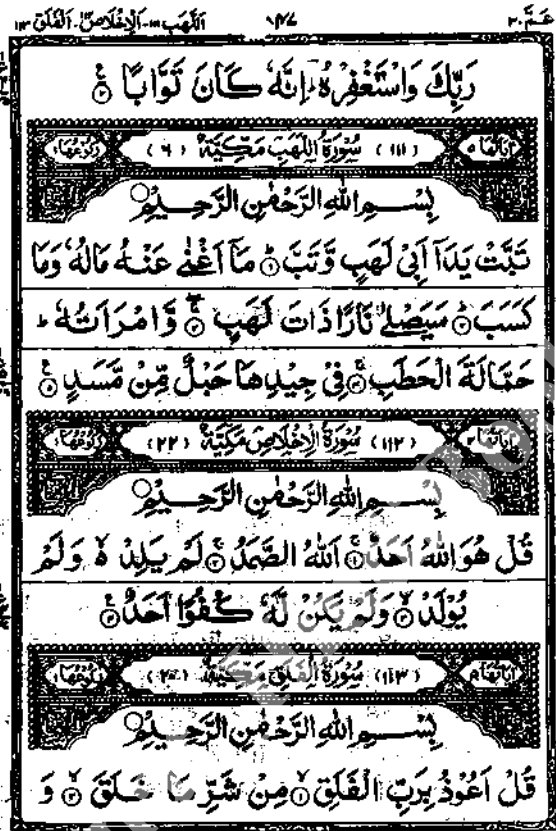 اللّهب ١١١-الاخلاص ١١٢-الفلق ١١٣
عمّ ٣٠
رَبِّكَ وَاسْتَغْفِرْهُ ؕ اِنَّهٗ كَانَ تَوَّابًا ۝٣
اٰیاتھا ٥ (١١١) سُوْرَةُ اللَّهَبِ مَكِّيَّةٌ (٦) رکوعھا ١
بِسْمِ اللهِ الرَّحْمٰنِ الرَّحِيْمِ
تَبَّتْ يَدَاۤ اَبِىْ لَهَبٍ وَّتَبَّ ؕ ۝١ مَاۤ اَغْنٰى عَنْهُ مَالُهٗ وَمَا
كَسَبَ ؕ ۝٢ سَيَصْلٰى نَارًا ذَاتَ لَهَبٍ ۝٣ وَّامْرَاَتُهٗ ؕ
حَمَّالَةَ الْحَطَبِ ۝٤ فِىْ جِيْدِهَا حَبْلٌ مِّنْ مَّسَدٍ ۝٥
اٰیاتھا ٤ (١١٢) سُوْرَةُ الْاِخْلَاصِ مَكِّيَّةٌ (٢٢) رکوعھا ١
بِسْمِ اللهِ الرَّحْمٰنِ الرَّحِيْمِ
قُلْ هُوَ اللهُ اَحَدٌ ۝١ اَللهُ الصَّمَدُ ۝٢ لَمْ يَلِدْ ۙ وَلَمْ
يُوْلَدْ ۝٣ وَلَمْ يَكُنْ لَّهٗ كُفُوًا اَحَدٌ ۝٤
اٰیاتھا ٥ (١١٣) سُوْرَةُ الْفَلَقِ مَكِّيَّةٌ (٢٠) رکوعھا ١
بِسْمِ اللهِ الرَّحْمٰنِ الرَّحِيْمِ
قُلْ اَعُوْذُ بِرَبِّ الْفَلَقِ ۝١ مِنْ شَرِّ مَا خَلَقَ ۝٢ وَ